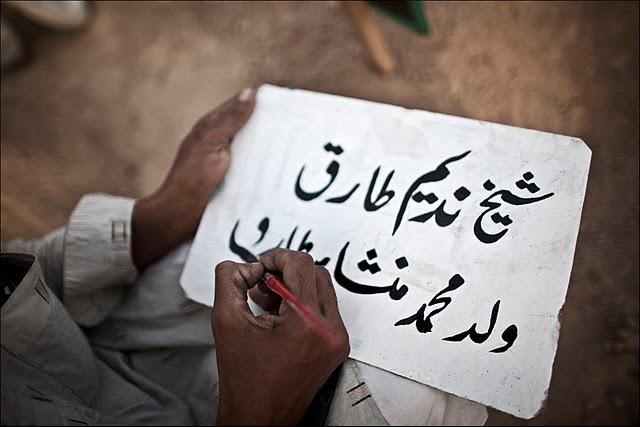 شیخ ندیم طارق
ولد محمد منشا طارق